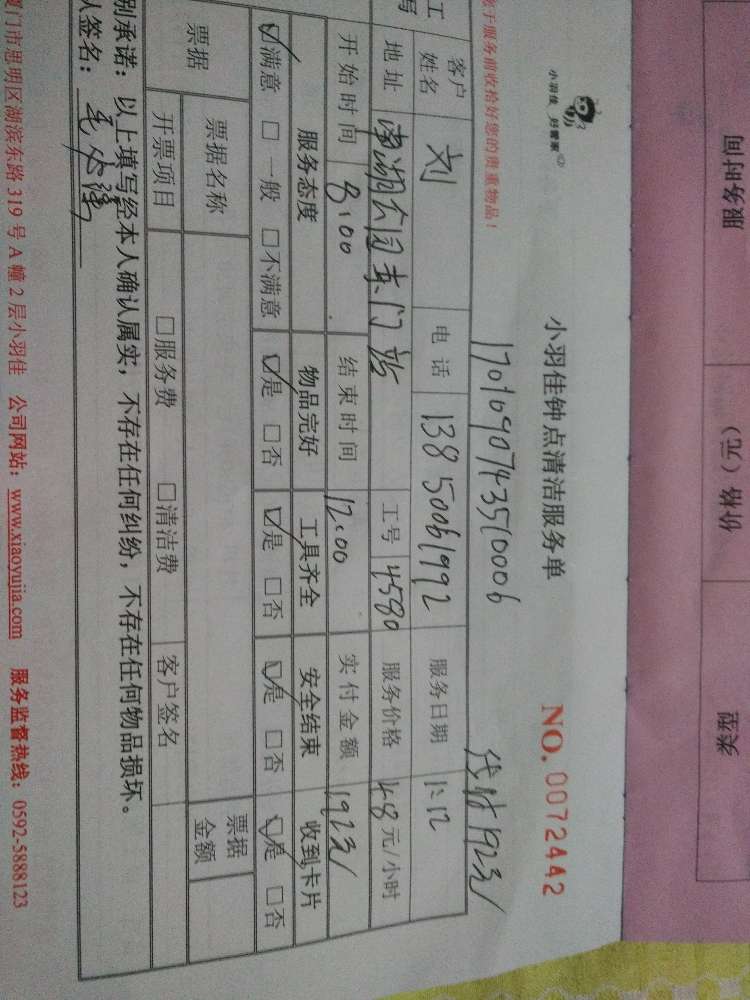 服务时间 价格（元） 类型
小羽佳 好管家
小羽佳钟点清洁服务单
NO. 0072442
于服务前收拾好您的贵重物品！
1701690743510006
1923/
工
写
客户姓名 刘 电话 13850061992 服务日期 1:12
地址 南湖公园东门站 工号 4580 服务价格 48元/小时
开始时间 8:00 结束时间 12:00 实付金额 1923/
服务态度 物品完好 工具齐全 安全结束 收到卡片
☑满意 □一般 □不满意 ☑是 □否 ☑是 □否 ☑是 □否 ☑是 □否
票据 票据名称 票据金额
开票项目 □服务费 □清洁费 客户签名
别承诺：以上填写经本人确认属实，不存在任何纠纷，不存在任何物品损坏。
人签名：
厦门市思明区湖滨东路319号A幢2层小羽佳 公司网站：www.xiaoyujia.com 服务监督热线：0592-5888123